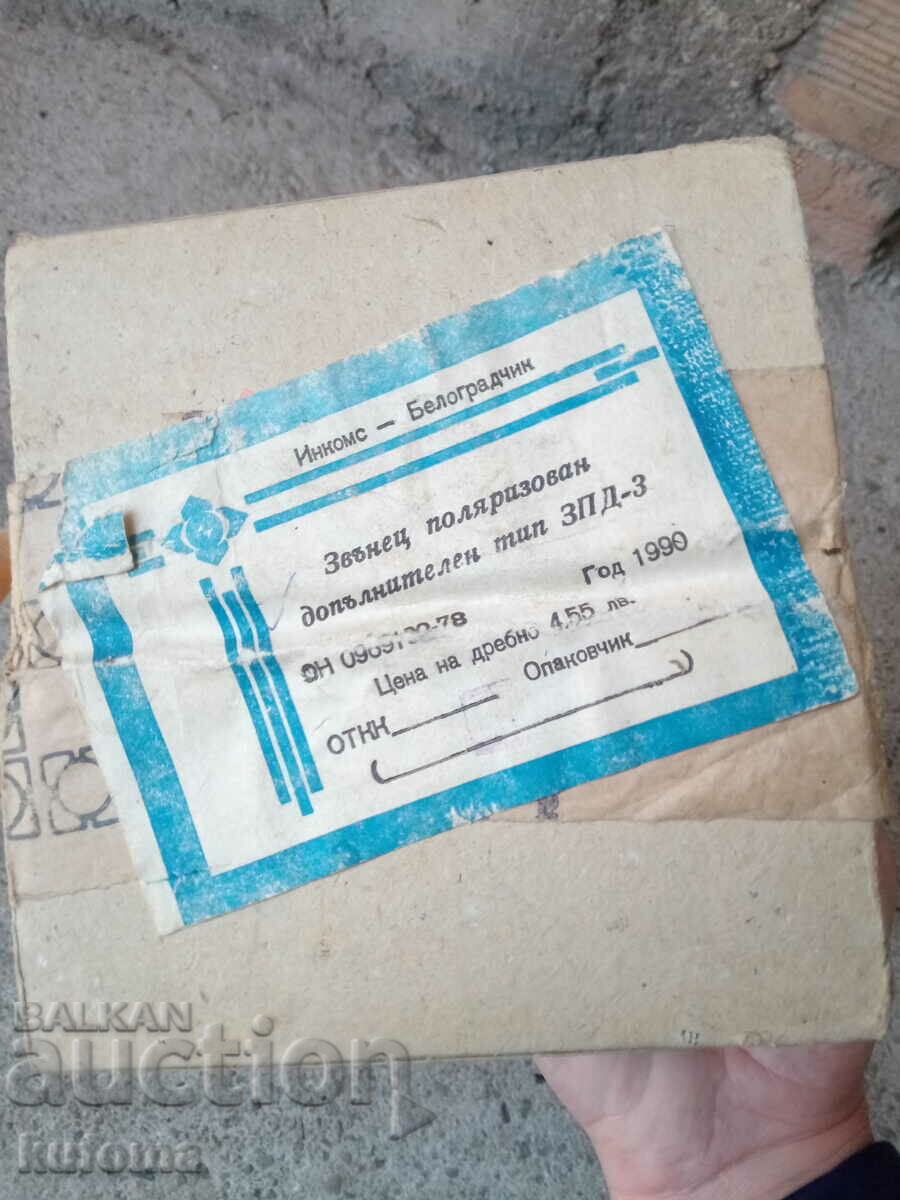 Инкомс – Белоградчик
Звънец поляризован
допълнителен тип ЗПД-3
ОН 78 Год 1990
Цена на дребно 4,55 лв.
ОТКК Опаковчик
BALKAN
auction
kufoma